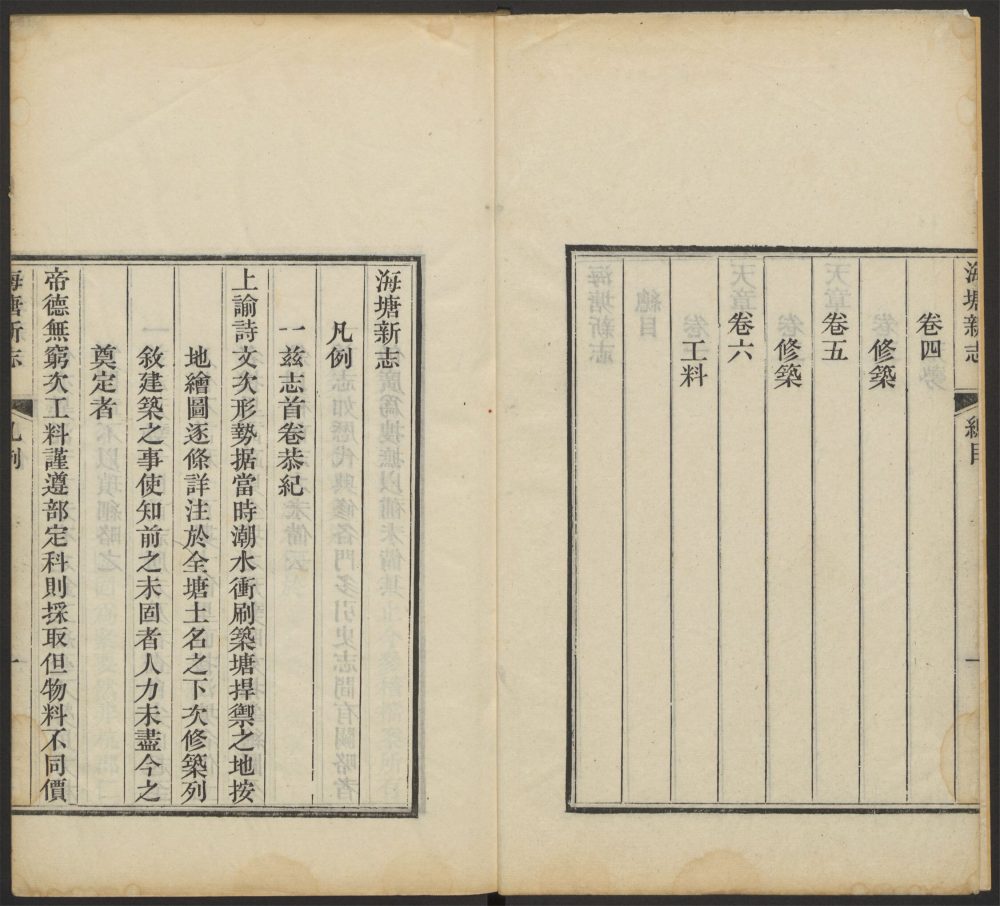 海塘新志 總目 一
卷四
修築
卷五
修築
卷六
工料
海塘新志
凡例
一茲志首卷恭紀
上諭詩文次形勢据當時潮水衝刷築塘捍禦之地按
地繪圖逐條詳注於全塘土名之下次修築列
敘建築之事使知前之未固者人力未盡今之
奠定者
帝德無窮次工料謹遵部定科則採取但物料不同價
海塘新志 凡例 一